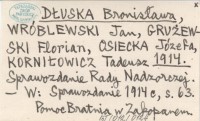 DŁUSKA Bronisława,
WRÓBLEWSKI Jan, GRUŻEW-
SKI Florian, CSIECKA Józefa,
KORNIŁOWICZ Tadeusz 1914.
Sprawozdanie Rady Nadzorczej.
— W: Sprawozdanie 1914 c, s. 63.
Pomoc Bratnia w Zakopanem.